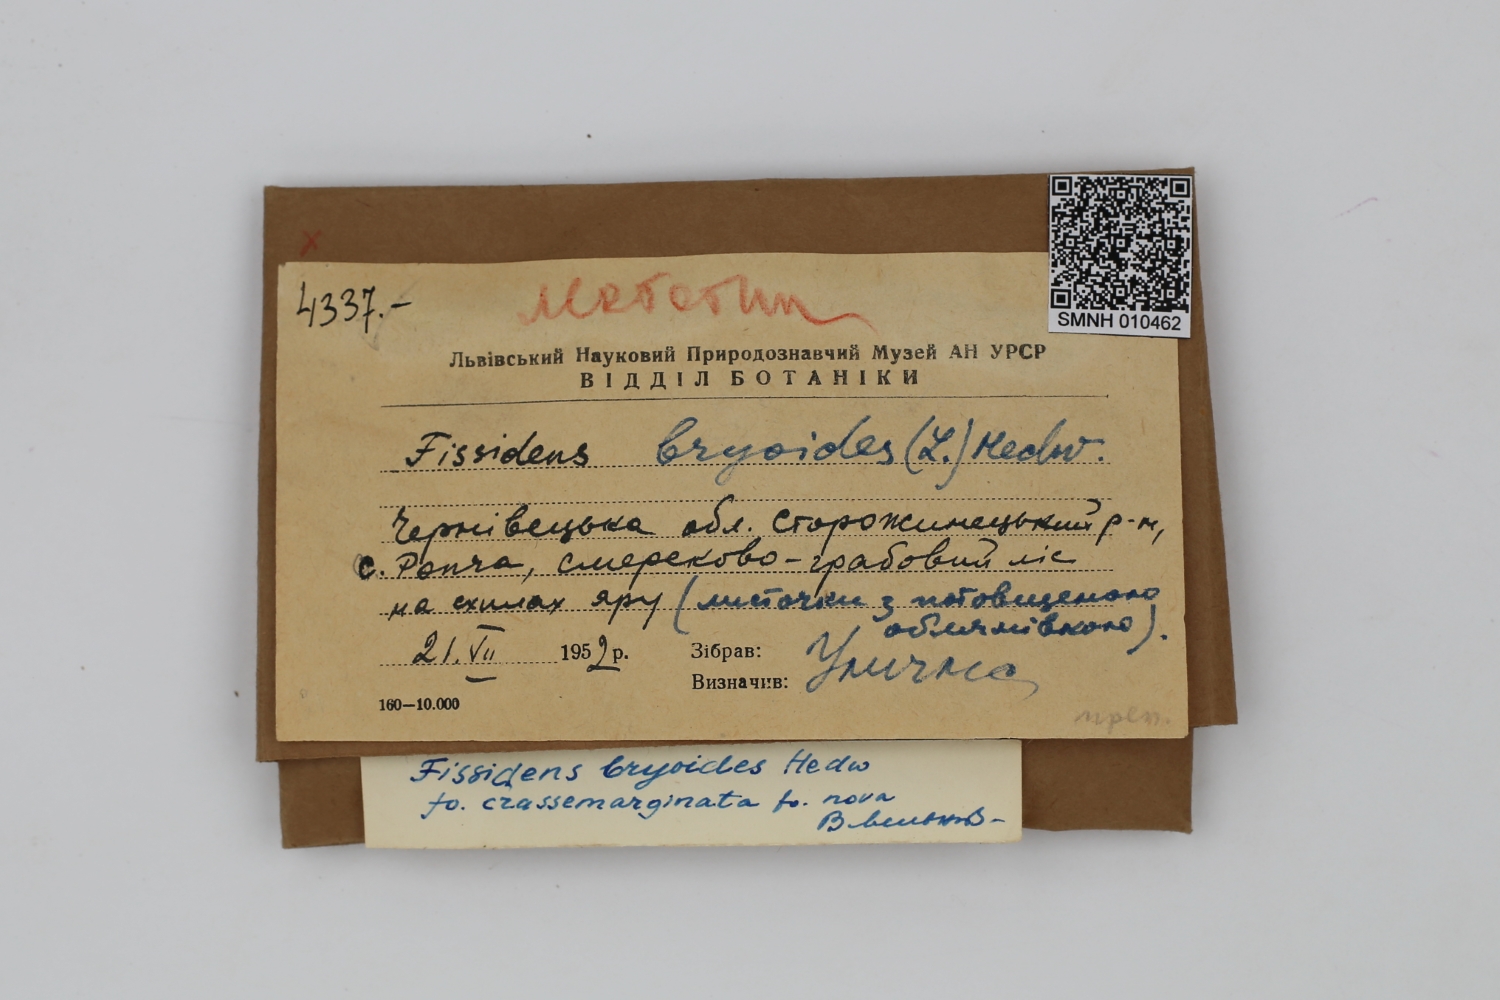 SMNH 010462
4337.-
Львівський Науковий Природознавчий Музей АН УРСР
ВІДДІЛ БОТАНІКИ
Fissidens bryoides (L.) Hedw.
Чернівецька обл. Сторожинецький р-н,
с. Ропча, смереково-грабовий ліс
на схилах яру (листочки з потовщеною
облямівкою).
21.VII 1952 р.
Зібрав:
Визначив:
Улична
160—10.000
преп.
Fissidens bryoides Hedw
fo. crassemarginata fo. nova